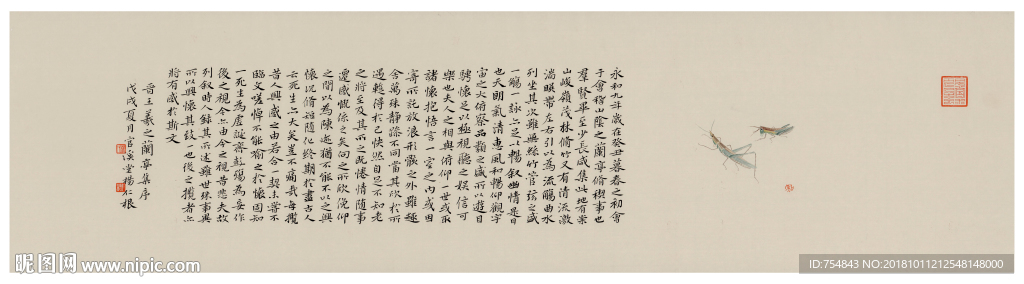 永和九年歲在癸丑暮春之初會
于會稽山陰之蘭亭脩稧事也
羣賢畢至少長咸集此地有崇
山峻嶺茂林脩竹又有清流激
湍暎帶左右引以為流觴曲水
列坐其次雖無絲竹管弦之盛
一觴一詠亦足以暢叙幽情是日
也天朗氣清惠風和暢仰觀宇
宙之大俯察品類之盛所以遊目
騁懷足以極視聽之娛信可
樂也夫人之相與俯仰一世或取
諸懷抱悟言一室之內或因
寄所託放浪形骸之外雖趣
舍萬殊靜躁不同當其欣於所
遇暫得於己快然自足不知老
之將至及其所之既惓情隨事
遷感慨係之矣向之所欣俛仰
之間以為陳迹猶不能不以之興
懷況脩短隨化終期於盡古人
云死生亦大矣豈不痛哉每攬
昔人興感之由若合一契未嘗不
臨文嗟悼不能喻之於懷固知
一死生為虛誕齊彭殤為妄作
後之視今亦由今之視昔悲夫故
列叙時人錄其所述雖世殊事異
所以興懷其致一也後之攬者亦
將有感於斯文
晉王羲之蘭亭集序
戊戌夏月官溪堂楊仁根
昵图网 www.nipic.com
ID:754843 NO:20181011212548148000